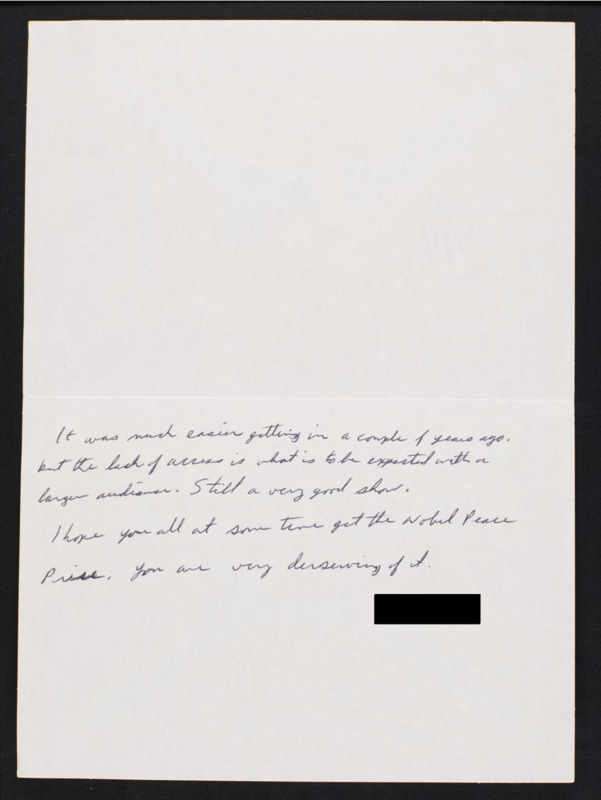 It was much easier getting in a couple of years ago.
but the lack of access is what is to be expected with a
larger audience. Still a very good show.
I hope you all at some time get the Nobel Peace
Prize. You are very derserving of it.